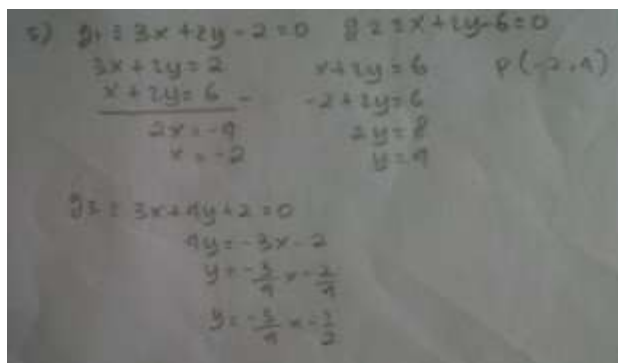 5) g1 ≡ 3x + 2y - 2 = 0 g2 ≡ x + 2y - 6 = 0
3x + 2y = 2 x + 2y = 6 P(-2,4)
x + 2y = 6 - -2 + 2y = 6
2x = -4 2y = 8
x = -2 y = 4
g3 ≡ 3x + 4y + 2 = 0
4y = -3x - 2
y = -3/4 x - 2/4
y = -3/4 x - 1/2